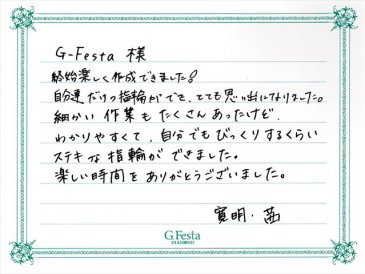 G-Festa 様
終始楽しく作成できました!
自分達だけの指輪ができ、とても思い出になりました。
細かい作業もたくさんあったけど、
わかりやすくて、自分でもびっくりするくらい
ステキな指輪ができました。
楽しい時間をありがとうございました。
寛明・茜
G.Festa
DIAMOND